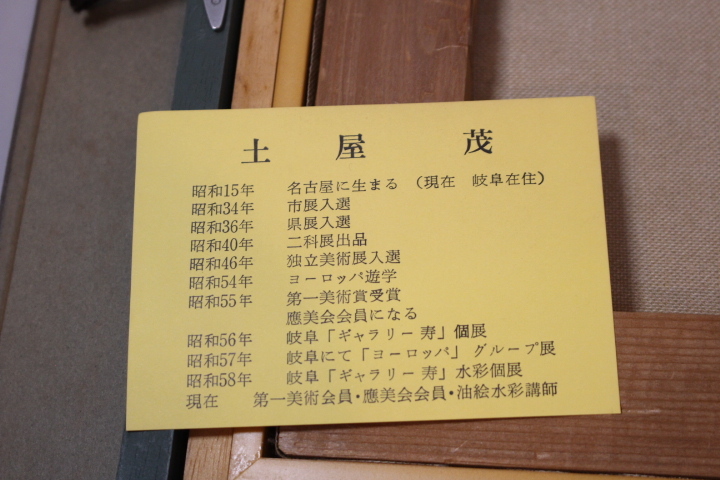 土屋 茂
昭和15年 名古屋に生まる (現在 岐阜在住)
昭和34年 市展入選
昭和36年 県展入選
昭和40年 二科展出品
昭和46年 独立美術展入選
昭和54年 ヨーロッパ遊学
昭和55年 第一美術賞受賞
應美会会員になる
昭和56年 岐阜「ギャラリー寿」個展
昭和57年 岐阜にて「ヨーロッパ」グループ展
昭和58年 岐阜「ギャラリー寿」水彩個展
現在 第一美術会員・應美会会員・油絵水彩講師